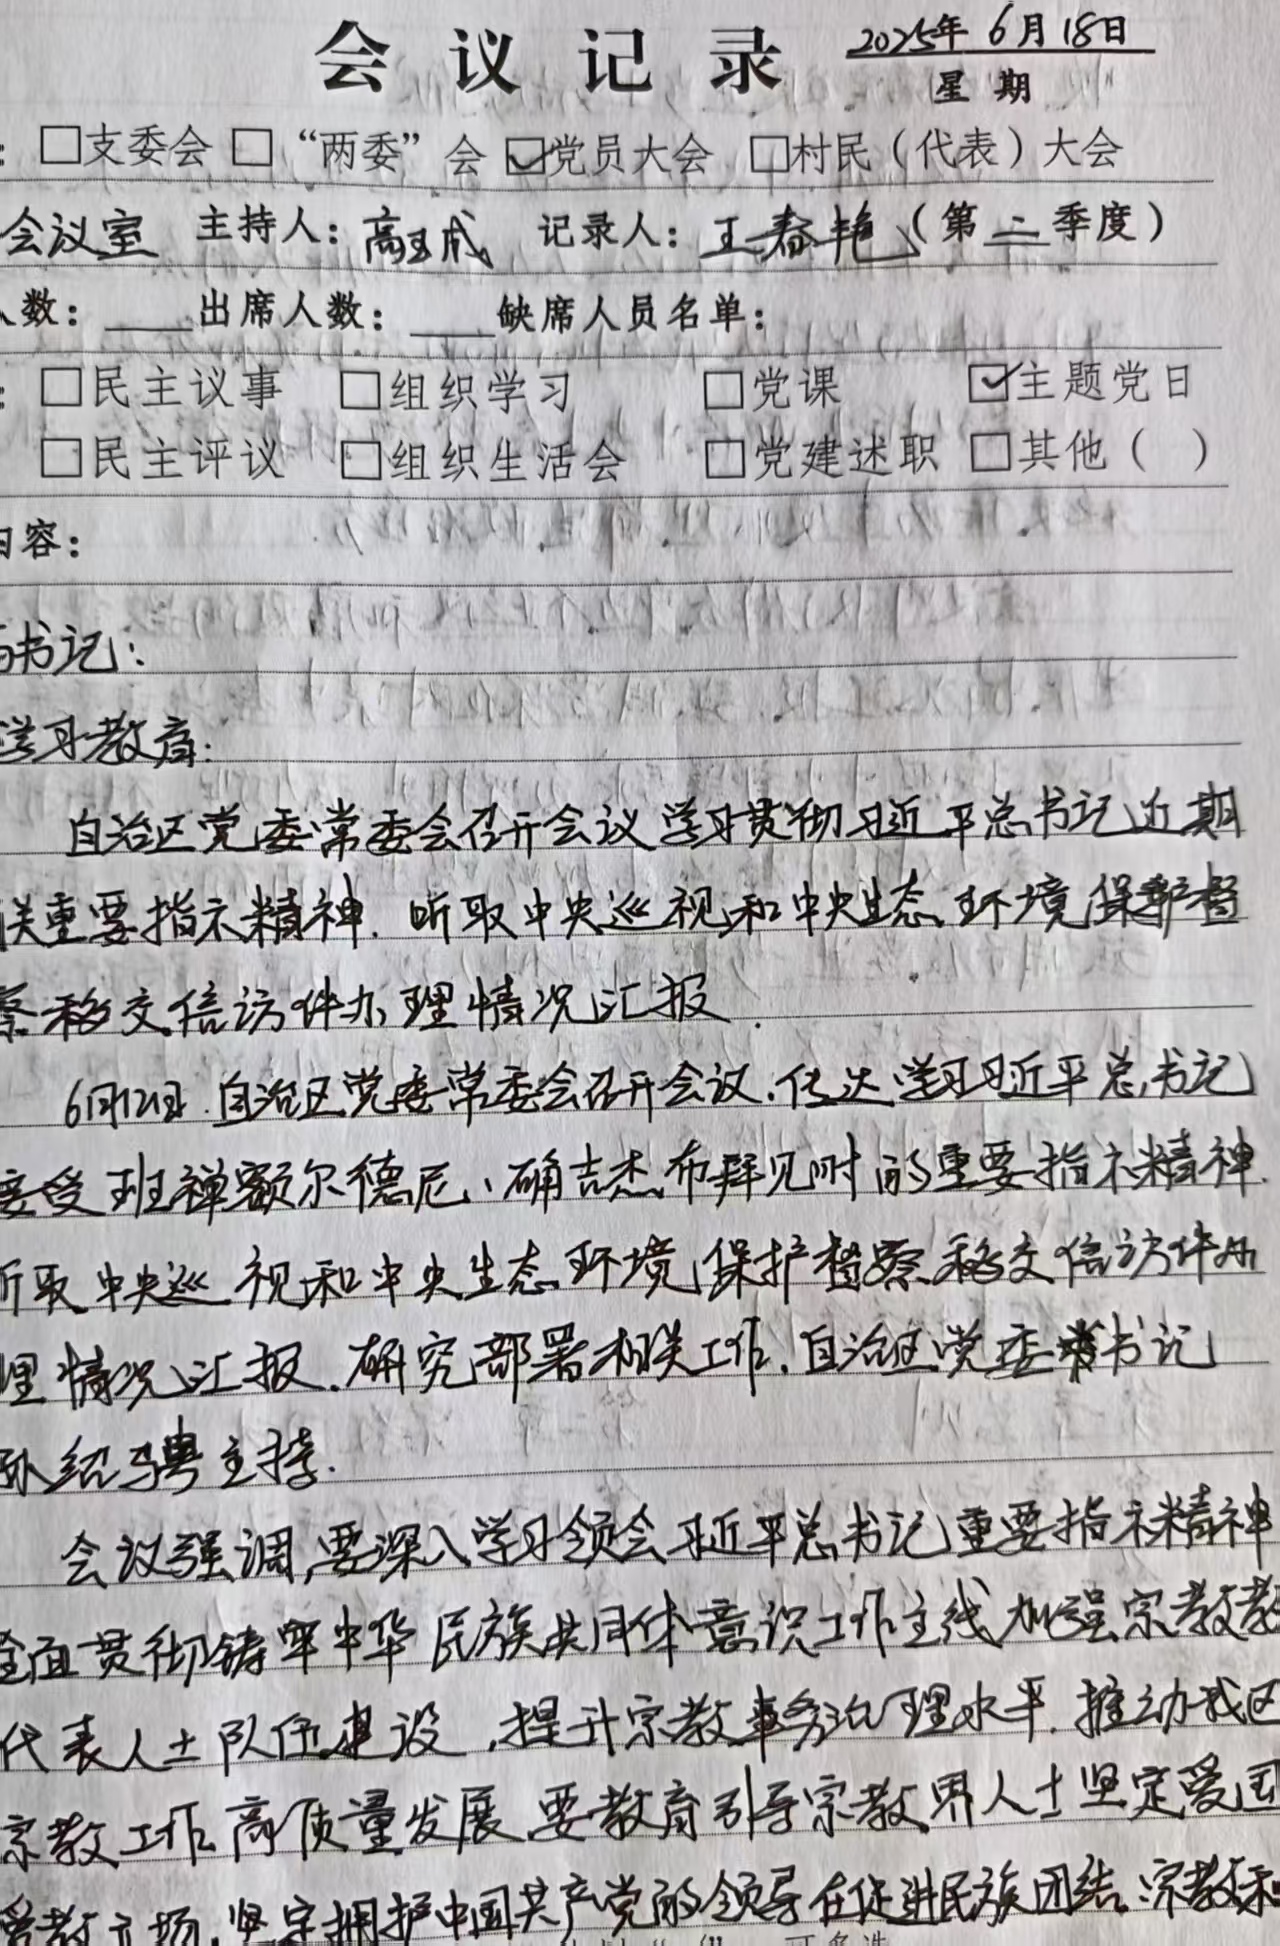 会议记录 2025年6月18日
星期
：□支委会 □“两委”会 ☑党员大会 □村民（代表）大会
会议室 主持人：高玉成 记录人：王春艳（第二季度）
人数：____出席人数：____缺席人员名单：
：□民主议事 □组织学习 □党课 ☑主题党日
□民主评议 □组织生活会 □党建述职 □其他（ ）
内容：
书记：
学习教育：
自治区党委常委会召开会议学习贯彻习近平总书记近期
关重要指示精神.听取中央巡视和中央生态环境保护督
察移交信访件办理情况汇报.
6月12日.自治区党委常委会召开会议.传达学习习近平总书记
接受班禅额尔德尼、确吉杰布拜见时的重要指示精神.
听取中央巡视和中央生态环境保护督察移交信访件办
理情况汇报.研究部署相关工作.自治区党委书记
孙绍骋主持.
会议强调,要深入学习领会习近平总书记重要指示精神
全面贯彻铸牢中华民族共同体意识工作主线加强宗教教
代表人士队伍建设,提升宗教事务治理水平.推动我区
宗教工作高质量发展.要教育引导宗教界人士坚定爱国
爱教立场,坚定拥护中国共产党的领导在促进民族团结.宗教和